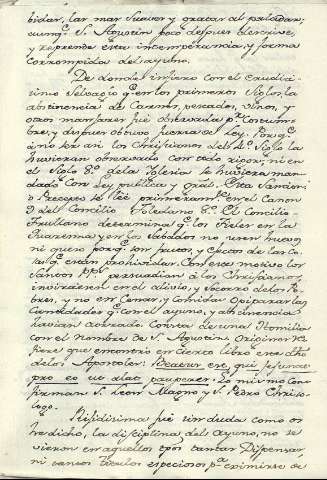 bidas, las mas suaves y gratas al paladar,
aunq.e S. Agustin poco despues describe,
y reprende esta intemperancia, y forma
corrompida del ayuno.
De donde infiero con el eruditi-
simo Selvagio q.e en los primeros Siglos, la
abstinencia de Carnes, pescados, vinos, y
otros manjares fué observada p.r costum-
bre, y despues obtuvo fuerza de Ley. Porq.e
a no ser asi los Christianos del 4.o Siglo la
huvieran observado con todo rigor, ni en
el Siglo 8.o de la Iglesia se huviera man-
dado con Ley publica y gral. Esta Sancion
o Precepto se leé primeram.te en el Canon
9 del Concilio Toledano 8.o El Concilio
Trullano determina q.e los fieles en la
Quaresma y en los Sabados no usen huevos
ni queso porq.e son frutos y efectos de las co-
sas q.e están prohividas. Con este motivo los
Santos P.P. persuadian á los Christianos
invirtiesen en el alivio, y socorro de los Po-
bres, y no en Cenas, y comidas opiparas las
Cantidades q.e con el ayuno, y abstinencia
havian ahorrado. Consta de una Homilia
con el nombre de S. Agustin. Origenes re-
fiere que encontró en cierto libro este dho
de los Apostoles: Beatus est, qui jejunat
pro eo ut alat pauperem. Lo mismo con-
firman S. Leon Magno y S. Pedro Chriso-
logo.
Rigidisima fué sin duda como se
ha dicho, la disciplina del Ayuno, no se
vieron en aquellos tpos tantas Dispensas,
ni tantos titulos especiosos p.a eximirse de